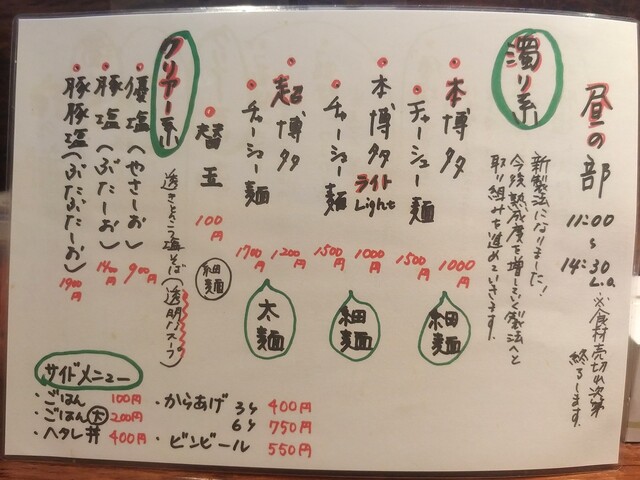 昼の部
11:00
〜
14:30
L.O.
※食材売切れ次第
終了します。
濁り系
新製法になりました!
今後熟成度を増していく製法へと
取り組みを進めていきます。
本博多
1000円
チャーシュー麺
1500円
細麺
本博多ライト
Light
1000円
チャーシュー麺
1500円
細麺
超博多
1200円
チャーシュー麺
1700円
太麺
替玉
100円
細麺
クリアー系
透きとおった塩そば(透明なスープ)
優塩(やさしーお)
900円
豚塩(ぶたーしお)
1400円
豚豚塩(ぶたぶたーしお)
1900円
サイドメニュー
・ごはん 100円
・ごはん大 200円
・ヘタレ丼 400円
・からあげ 3ケ 400円
6ケ 750円
・ビンビール 550円